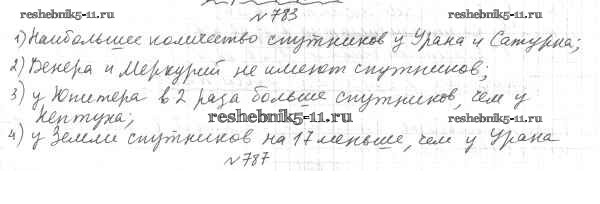 № 783
reshebnik5-11.ru reshebnik5-11.ru
1) Наибольшее количество спутников у Урана и Сатурна;
2) Венера и Меркурий не имеют спутников;
3) у Юпитера в 2 раза больше спутников, чем у
Нептуна;
reshebnik5-11.ru
4) у Земли спутников на 17 меньше, чем у Урана
№ 787
reshebnik5-11.ru reshebnik5-11.ru